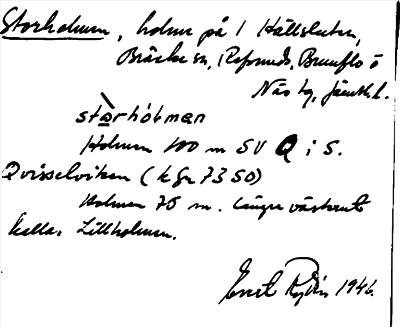 Storholmen, holme på 1 Hällsluten,
Bräcke sn, Refsunds, Brunflo o
Näs tg, Jämtl.
stòrhóḷman
Holmen 100 m SV Q i S.
Qvisselviken (k gr 7350)
Holmen 75 m. längre västerut
kallas Lillholmen.
1946.